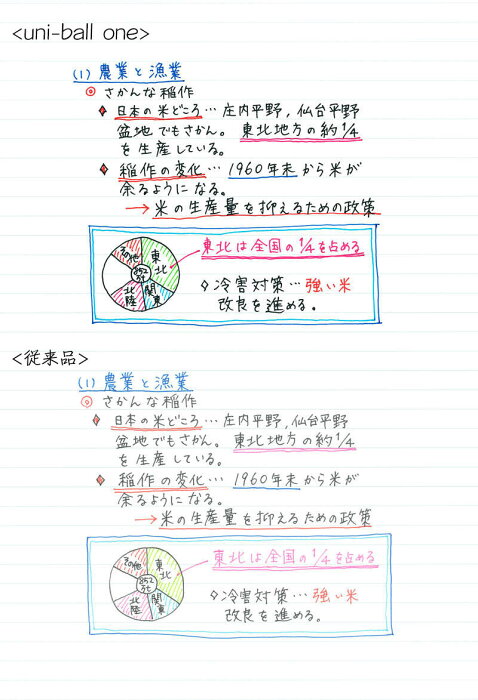 <uni-ball one>
(1) 農業と漁業
◎ さかんな稲作
♦ 日本の米どころ… 庄内平野, 仙台平野
盆地でもさかん。 東北地方の約1/4
を生産している。
♦ 稲作の変化… 1960年末から米が
余るようになる。
→ 米の生産量を抑えるための政策
その他
東北
関東
北陸
852万t
東北は全国の1/4を占める
◇冷害対策…強い米
改良を進める。
<従来品>
(1) 農業と漁業
◎ さかんな稲作
♦ 日本の米どころ… 庄内平野, 仙台平野
盆地でもさかん。 東北地方の約1/4
を生産している。
♦ 稲作の変化… 1960年末から米が
余るようになる。
→ 米の生産量を抑えるための政策
その他
東北
関東
北陸
852万t
東北は全国の1/4を占める
◇冷害対策…強い米
改良を進める。